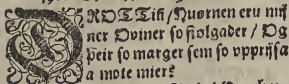 DROTTiñ/ Huornen eru mij
ner Oviner ſo fiolgader / Og
þeir ſo marger ſem ſo vpprijſa
a mote mier?